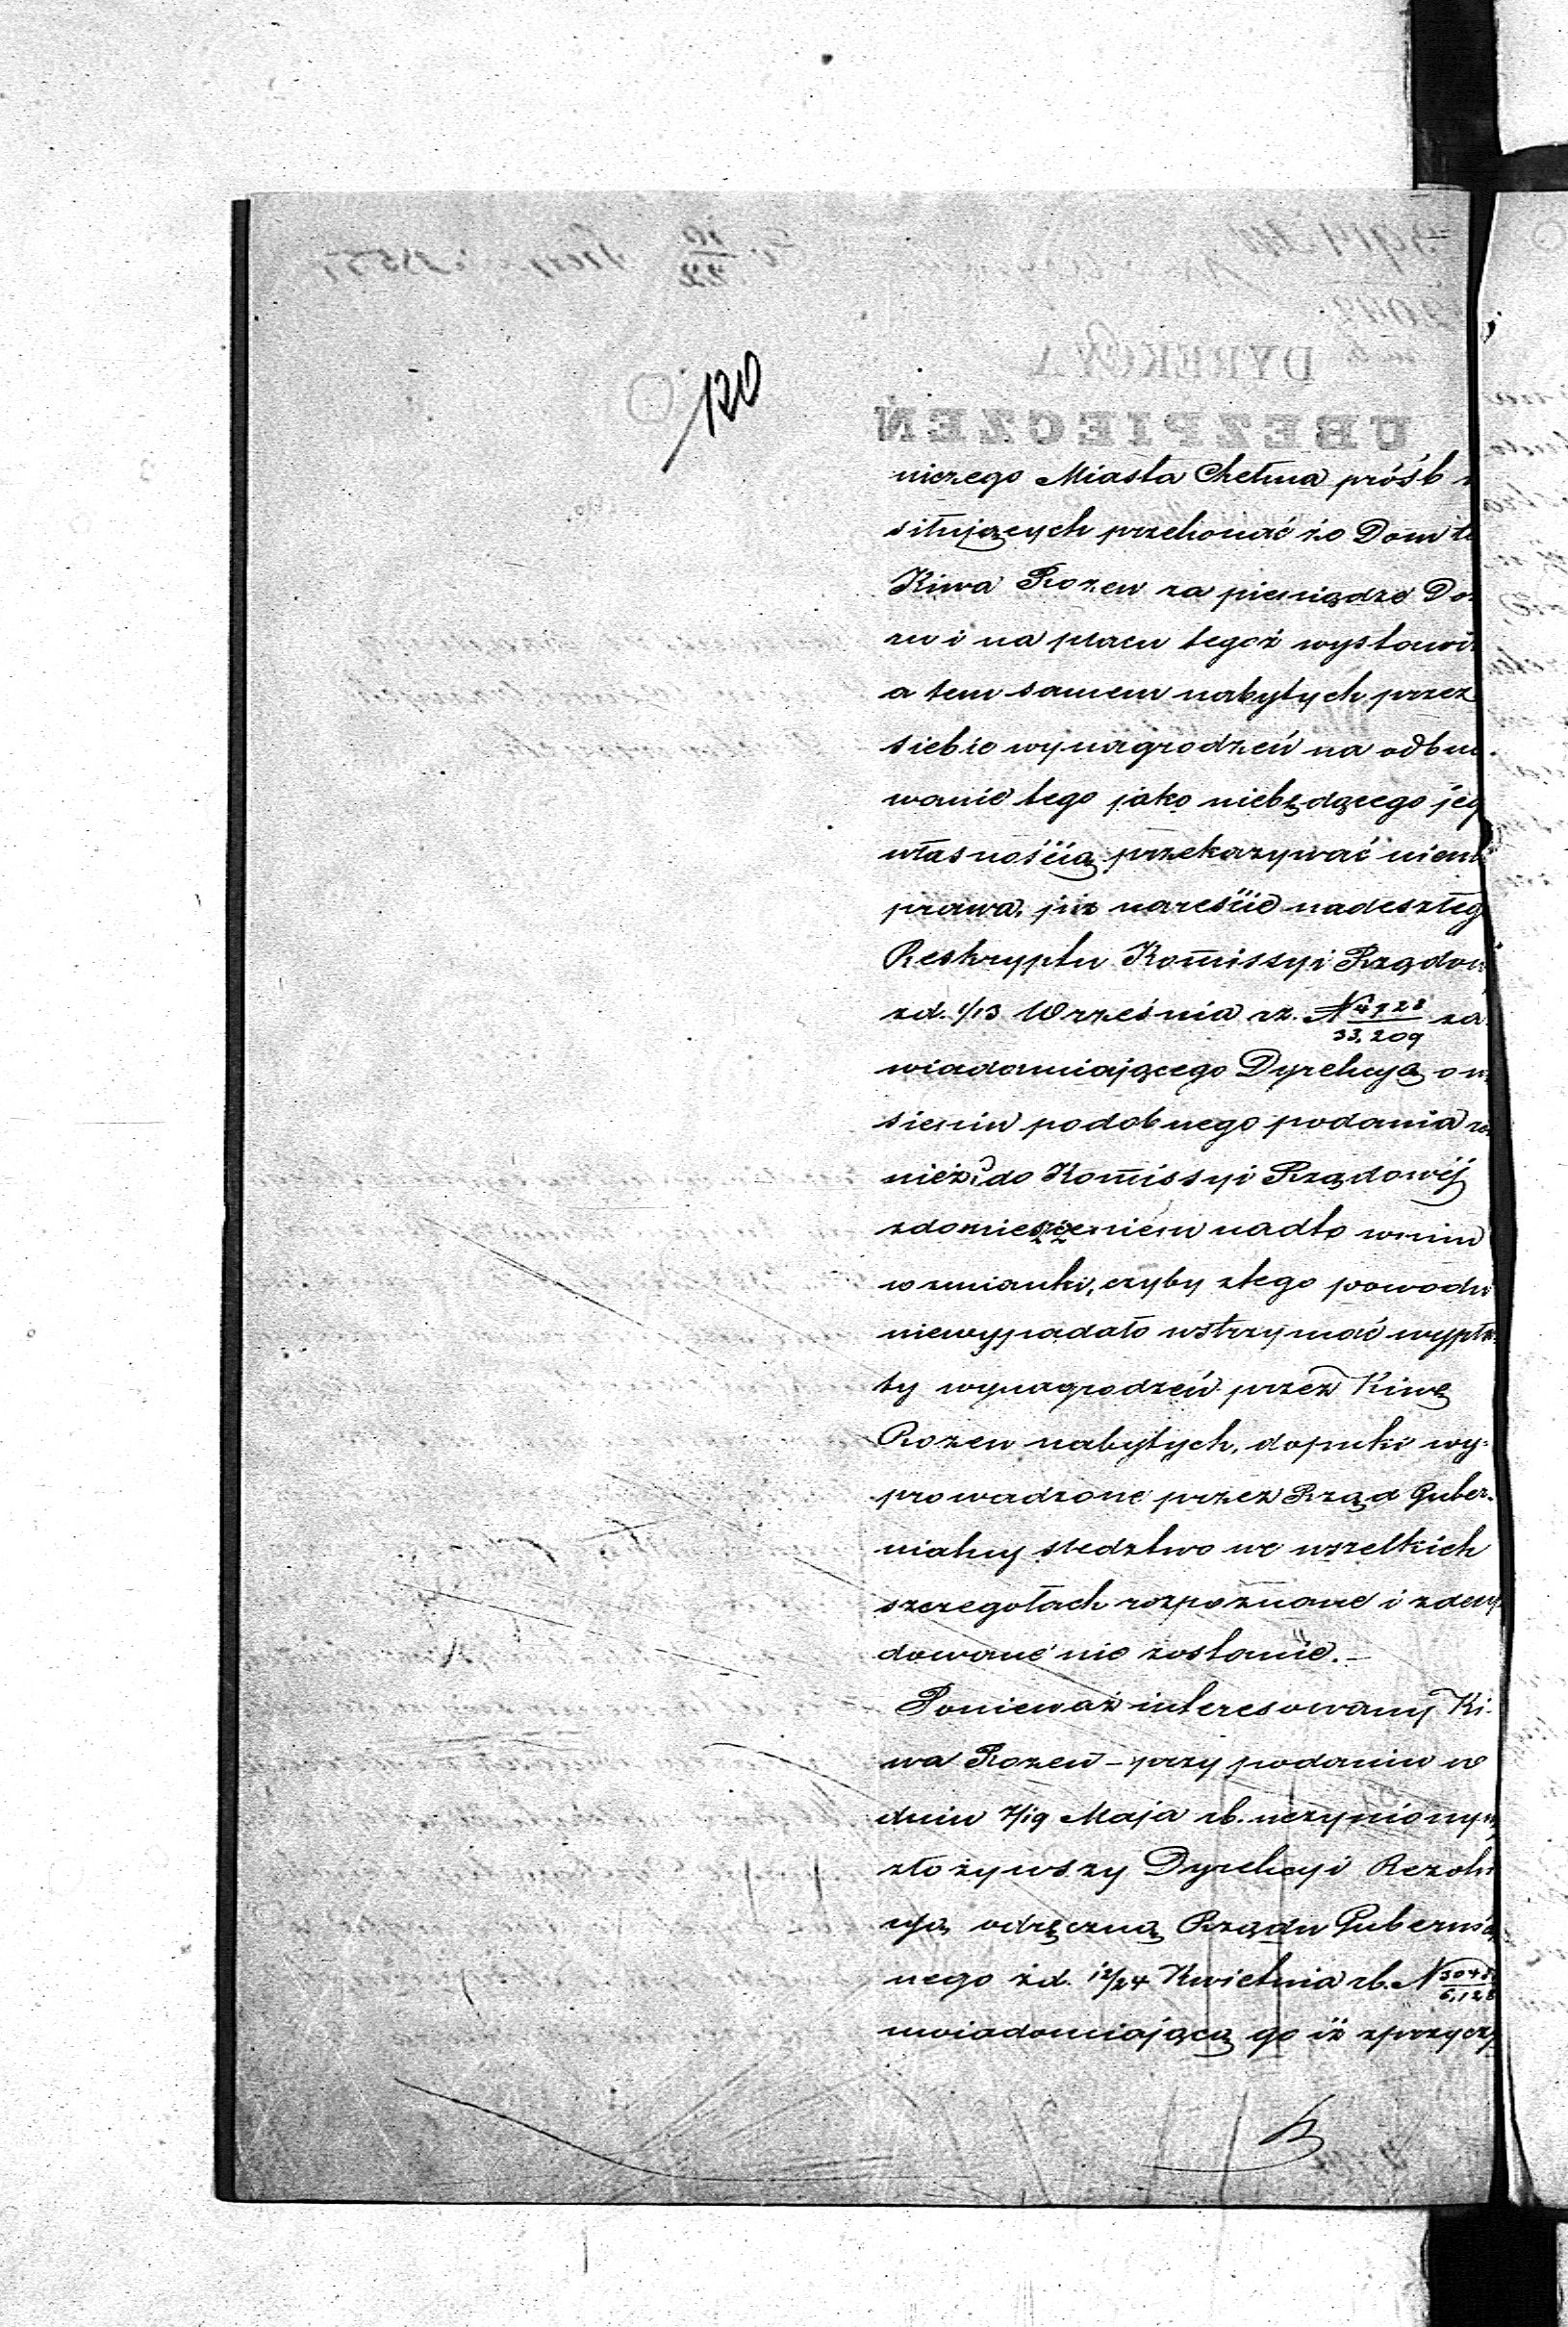 120
niczego Miasta Chełma próśb
siłujących przekonać że Dom
Kiwa Rozen za pieniądze Do
ru i na placu tegoż wystawi
a tem samem nabytych przez
siebie wynagrodzeń na odbu-
wanie tego jako niebędącego jeg
własnością przekazywać niem
prawa, już nareście nadeszłeg
Reskryptu Kommissyi Rządow
zd. 1/13 Września rz. N 4928/33,209 za
wiadomiającego Dyrekcyą o w
sieniu podobnego podania ró
nież do Kommissyi Rządowéj
zdomieszczeniem nadto w nim
wzmianki, czyby ztego powodu
niewypadało wstrzymać wypła
ty wynagrodzeń przez Kiwę
Rozen nabytych, dopuki wy-
prowadzone przez Rząd Guber-
nialny śledztwo we wszelkich
szczegołach rozpoznane i zdecy
dowane nie zostanie.-
Ponieważ interesowany Ki-
wa Rozen - przy podaniu w
dniu 7/19 Maja rb. uczynionym
złożywszy Dyrekcyi Rezolu
cyą odręczną Rządu Gubernia
nego zd. 12/24 Kwietnia rb. N 3048/6,128
uwiadomiającą go iż zprzyczy